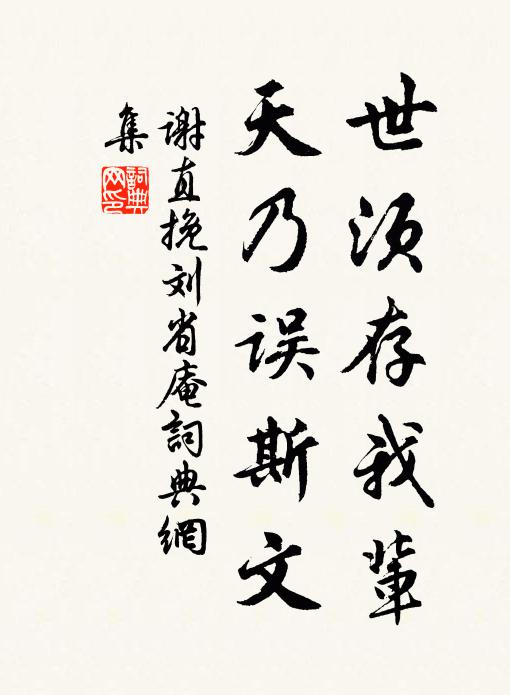 世须存我辈
天乃误斯文
谢直挽刘省庵詞典網
集
詞典网印